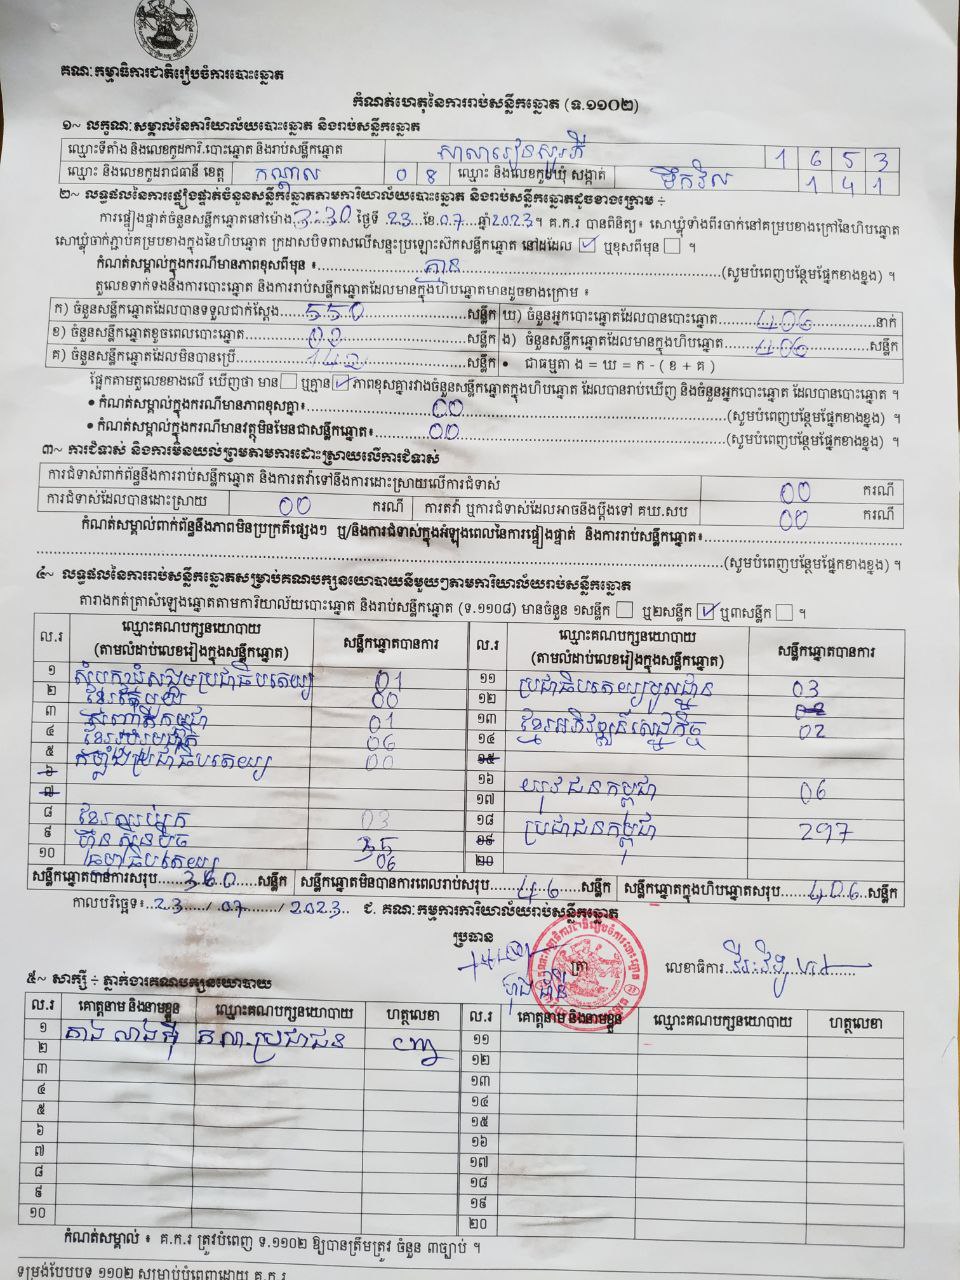 គណៈកម្មាធិការជាតិរៀបចំការបោះឆ្នោត
កំណត់ហេតុនៃការរាប់សន្លឹកឆ្នោត (ទ.១១០២)
១~ លក្ខណៈសម្គាល់នៃការិយាល័យបោះឆ្នោត និងរាប់សន្លឹកឆ្នោត
ឈ្មោះទីតាំង និងលេខកូដការិ.បោះឆ្នោត និងរាប់សន្លឹកឆ្នោត សាលារៀន 1 6 5 3
ឈ្មោះ និងលេខកូដរាជធានី ខេត្ត កណ្តាល 0 8 ឈ្មោះ និងលេខកូដឃុំ សង្កាត់ 1 4 1
២~ លទ្ធផលនៃការផ្ទៀងផ្ទាត់ចំនួនសន្លឹកឆ្នោតតាមការិយាល័យបោះឆ្នោត និងរាប់សន្លឹកឆ្នោតដូចខាងក្រោម ÷
ការផ្ទៀងផ្ទាត់ចំនួនសន្លឹកឆ្នោតនៅម៉ោង 3:30 ថ្ងៃទី 23 ខែ 07 ឆ្នាំ 2023 ។ គ.ក.រ បានពិនិត្យ៖ សោឃ្លុំទាំងពីរចាក់នៅគម្របខាងក្រៅនៃហិបឆ្នោត
សោឃ្លុំចាក់ភ្ជាប់គម្របខាងក្នុងនៃហិបឆ្នោត ក្រដាសបិទពាសលើសន្ទះប្រឡោះស៊កសន្លឹកឆ្នោត នៅដដែល ☑ ឬខុសពីមុន ☐ ។
កំណត់សម្គាល់ក្នុងករណីមានភាពខុសពីមុន ៖ គ្មាន (សូមបំពេញបន្ថែមផ្នែកខាងខ្នង) ។
តួលេខទាក់ទងនឹងការបោះឆ្នោត និងការរាប់សន្លឹកឆ្នោតដែលមានក្នុងហិបឆ្នោតមានដូចខាងក្រោម ៖
ក) ចំនួនសន្លឹកឆ្នោតដែលបានទទួលជាក់ស្តែង 550 សន្លឹក ឃ) ចំនួនអ្នកបោះឆ្នោតដែលបានបោះឆ្នោត 406 នាក់
ខ) ចំនួនសន្លឹកឆ្នោតខូចពេលបោះឆ្នោត សន្លឹក ង) ចំនួនសន្លឹកឆ្នោតដែលមានក្នុងហិបឆ្នោត 406 សន្លឹក
គ) ចំនួនសន្លឹកឆ្នោតដែលមិនបានប្រើ សន្លឹក • ជាធម្មតា ង = ឃ = ក - ( ខ + គ )
ផ្អែកតាមតួលេខខាងលើ ឃើញថា មាន ☐ ឬគ្មាន ☑ ភាពខុសគ្នារវាងចំនួនសន្លឹកឆ្នោតក្នុងហិបឆ្នោត ដែលបានរាប់ឃើញ និងចំនួនអ្នកបោះឆ្នោត ដែលបានបោះឆ្នោត ។
• កំណត់សម្គាល់ក្នុងករណីមានភាពខុសគ្នា៖ 00 (សូមបំពេញបន្ថែមផ្នែកខាងខ្នង) ។
• កំណត់សម្គាល់ក្នុងករណីមានវត្ថុមិនមែនជាសន្លឹកឆ្នោត៖ 00 (សូមបំពេញបន្ថែមផ្នែកខាងខ្នង) ។
៣~ ការជំទាស់ និងការមិនយល់ព្រមតាមការដោះស្រាយលើការជំទាស់
ការជំទាស់ពាក់ព័ន្ធនឹងការរាប់សន្លឹកឆ្នោត និងការតវ៉ាទៅនឹងការដោះស្រាយលើការជំទាស់ 00 ករណី
ការជំទាស់ដែលបានដោះស្រាយ 00 ករណី ការតវ៉ា ឬការជំទាស់ដែលអាចនឹងប្តឹងទៅ គឃ.សប 00 ករណី
កំណត់សម្គាល់ពាក់ព័ន្ធនឹងភាពមិនប្រក្រតីផ្សេងៗ ឬ/និងការជំទាស់ក្នុងអំឡុងពេលនៃការផ្ទៀងផ្ទាត់ និងការរាប់សន្លឹកឆ្នោត៖
(សូមបំពេញបន្ថែមផ្នែកខាងខ្នង) ។
៤~ លទ្ធផលនៃការរាប់សន្លឹកឆ្នោតសម្រាប់គណបក្សនយោបាយនីមួយៗតាមការិយាល័យរាប់សន្លឹកឆ្នោត
តារាងកត់ត្រាសំឡេងឆ្នោតតាមការិយាល័យបោះឆ្នោត និងរាប់សន្លឹកឆ្នោត (ទ.១១០៨) មានចំនួន ១សន្លឹក ☐ ឬ២សន្លឹក ☑ ឬ៣សន្លឹក ☐ ។
ល.រ ឈ្មោះគណបក្សនយោបាយ (តាមលំដាប់លេខរៀងក្នុងសន្លឹកឆ្នោត) សន្លឹកឆ្នោតបានការ ល.រ ឈ្មោះគណបក្សនយោបាយ (តាមលំដាប់លេខរៀងក្នុងសន្លឹកឆ្នោត) សន្លឹកឆ្នោតបានការ
១ សំបុកឃ្មុំសង្គមប្រជាធិបតេយ្យ 01 ១១ ប្រជាធិបតេយ្យមូលដ្ឋាន 03
២ ខ្មែរតែមួយ 00 ១២
៣ សញ្ជាតិកម្ពុជា 01 ១៣ ខ្មែរអភិវឌ្ឍន៍សេដ្ឋកិច្ច 02
៤ ខ្មែររួបរួមជាតិ 06 ១៤
៥ កម្លាំងប្រជាធិបតេយ្យ 00 ១៥
៦ ១៦ យុវជនកម្ពុជា 06
៧ ១៧
៨ ខ្មែរឈប់ក្រ 03 ១៨ ប្រជាជនកម្ពុជា 297
៩ ហ៊្វុនស៊ិនប៉ិច 35 ១៩
១០ ធម្មាធិបតេយ្យ 06 ២០
សន្លឹកឆ្នោតបានការសរុប 360 សន្លឹក សន្លឹកឆ្នោតមិនបានការពេលរាប់សរុប 46 សន្លឹក សន្លឹកឆ្នោតក្នុងហិបឆ្នោតសរុប 406 សន្លឹក
កាលបរិច្ឆេទ៖ 23 / 07 / 2023 ជ. គណៈកម្មការការិយាល័យរាប់សន្លឹកឆ្នោត
ប្រធាន
ត្រា លេខាធិការ
៥~ សាក្សី ÷ ភ្នាក់ងារគណបក្សនយោបាយ
ល.រ គោត្តនាម និងនាមខ្លួន ឈ្មោះគណបក្សនយោបាយ ហត្ថលេខា ល.រ គោត្តនាម និងនាមខ្លួន ឈ្មោះគណបក្សនយោបាយ ហត្ថលេខា
១ គណ.ប្រជាជន ១១
២ ១២
៣ ១៣
៤ ១៤
៥ ១៥
៦ ១៦
៧ ១៧
៨ ១៨
៩ ១៩
១០ ២០
កំណត់សម្គាល់ ៖ គ.ក.រ ត្រូវបំពេញ ទ.១១០២ ឱ្យបានត្រឹមត្រូវ ចំនួន ៣ច្បាប់ ។
ទម្រង់បែបបទ ១១០២ សម្រាប់បំពេញដោយ គ.ក.រ